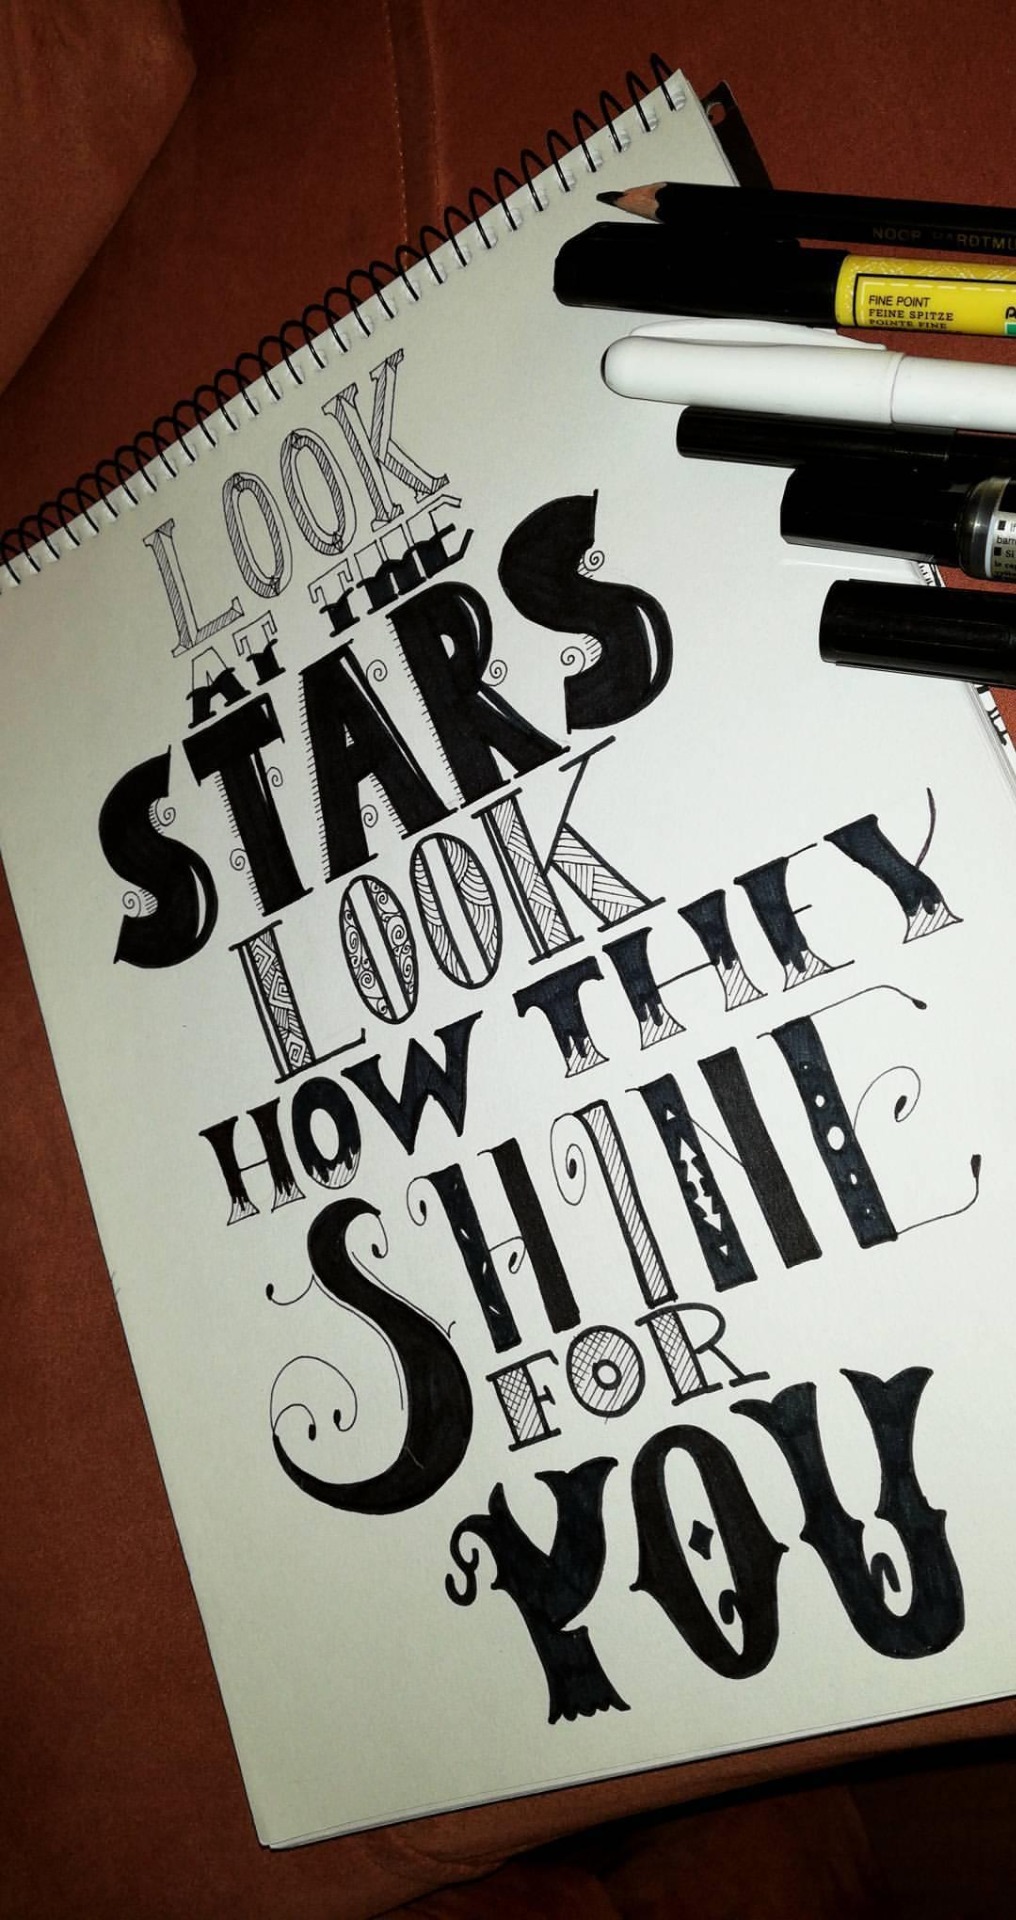 LOOK
AT THE
STARS
LOOK
HOW THEY
SHINE
FOR
YOU
FINE POINT
FEINE SPITZE
POINTE FINE